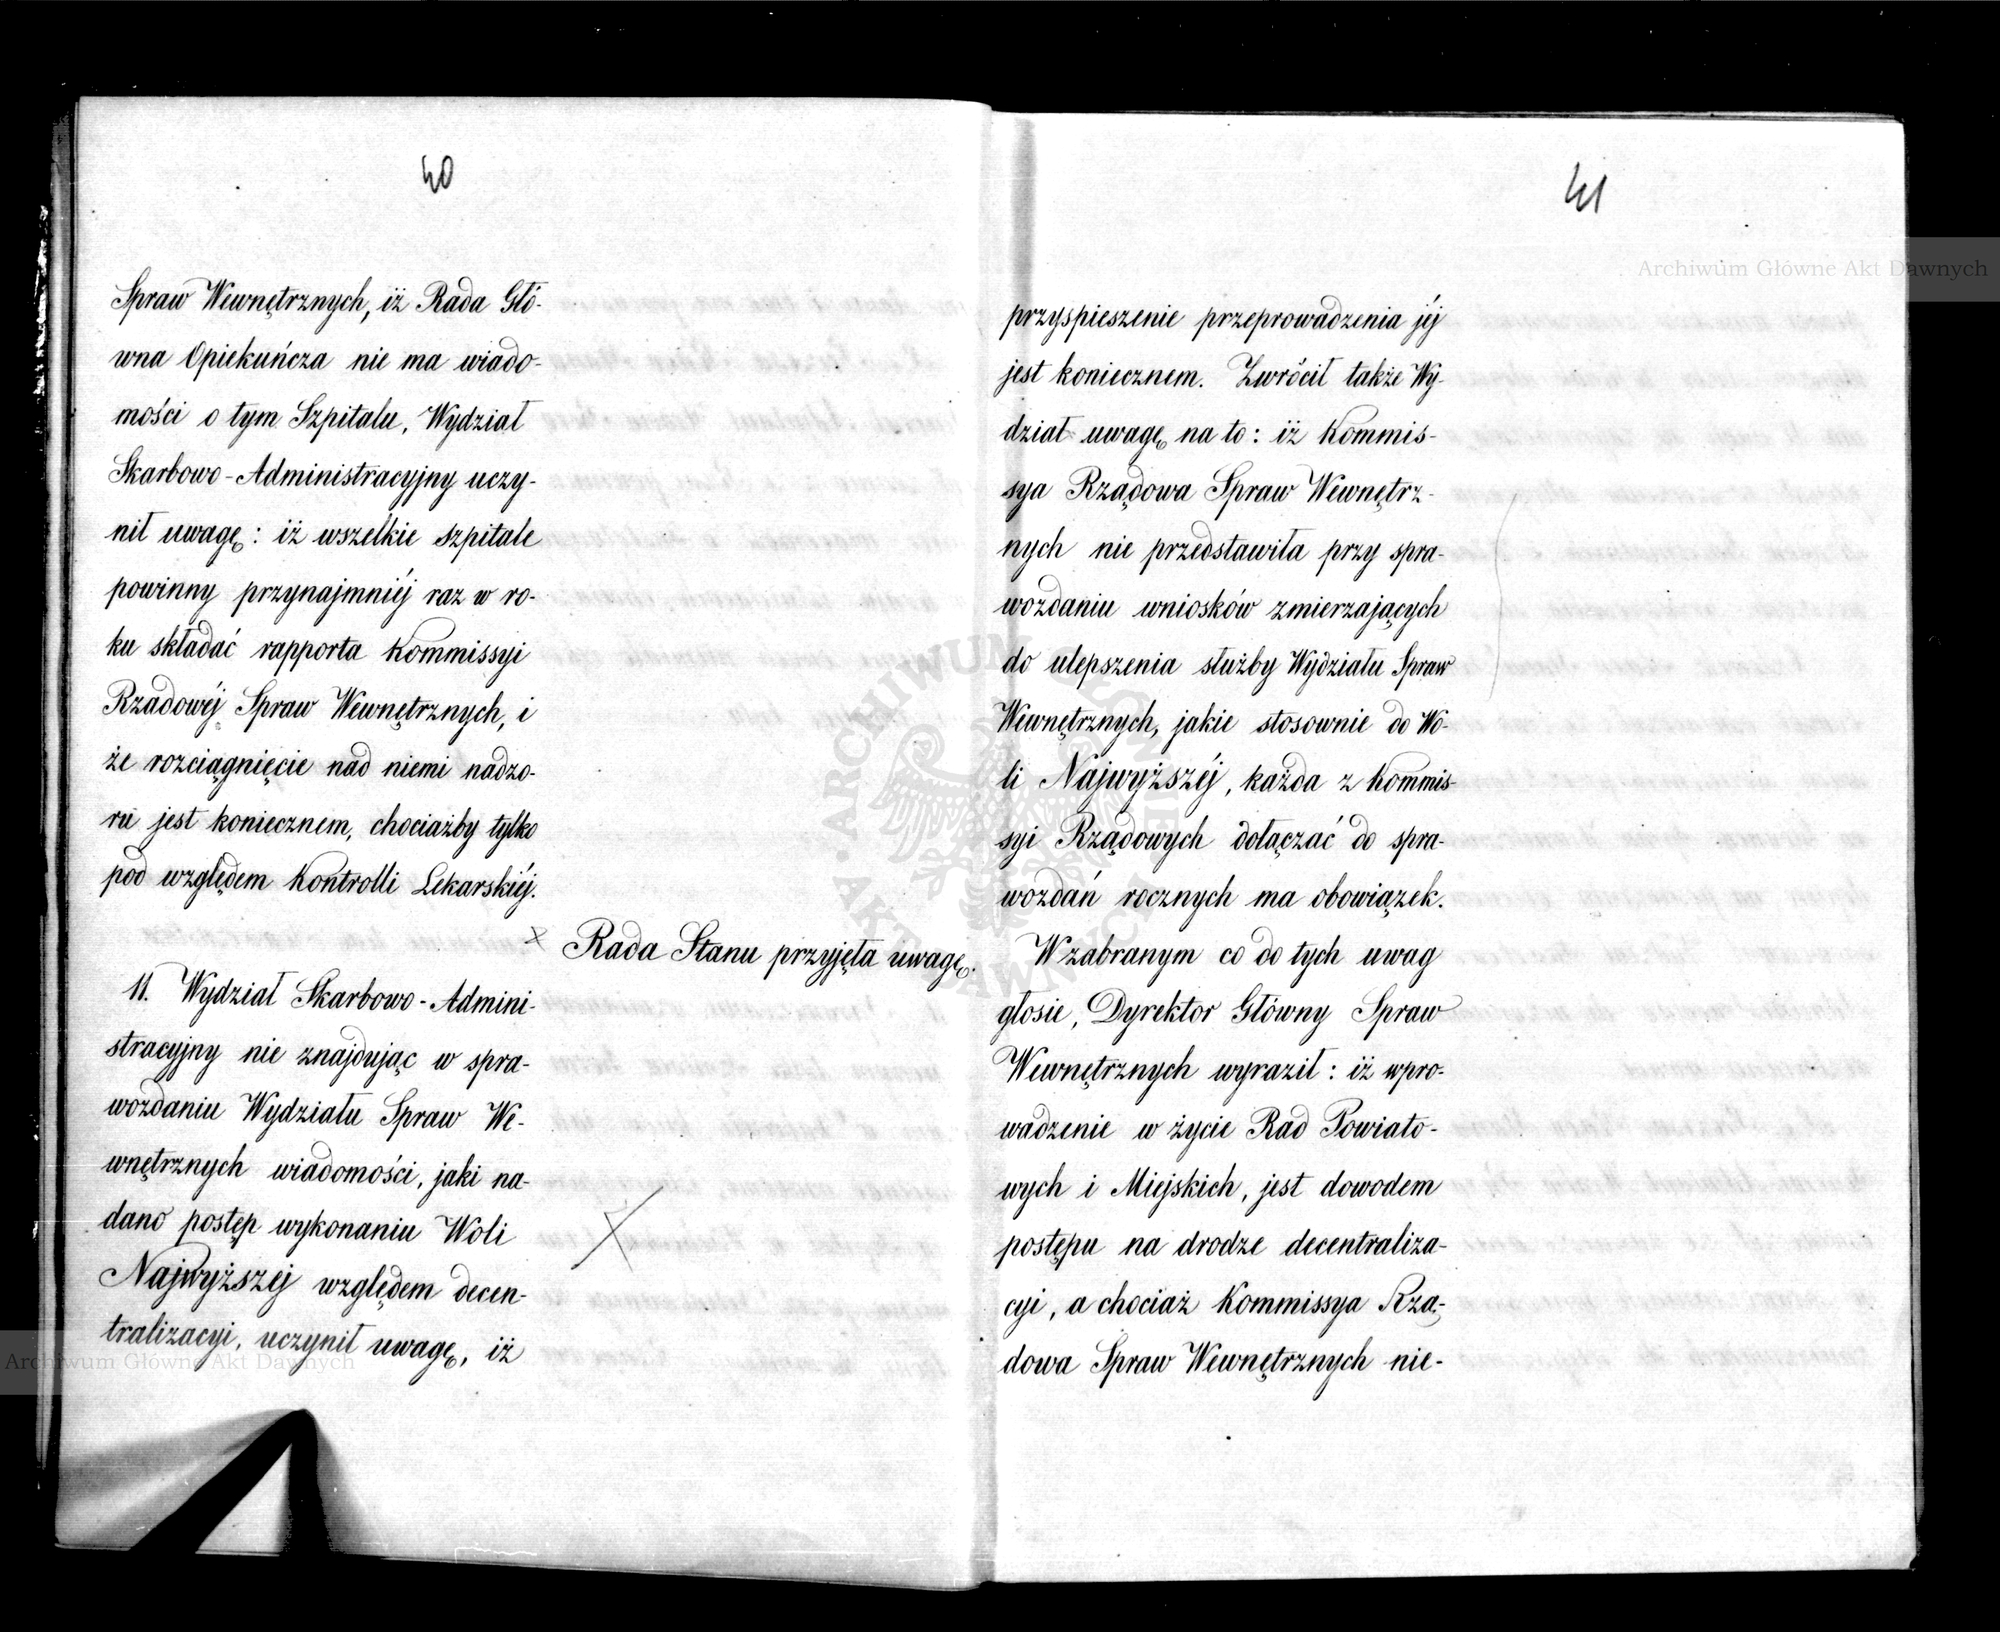 40
Spraw Wewnętrznych, iż Rada Głó-
wna Opiekuńcza nie ma wiado-
mości o tym Szpitalu, Wydział
Skarbowo-Administracyjny uczy-
nił uwagę: iż wszelkie szpitale
powinny przynajmniéj raz w ro-
ku składać rapporta Kommissyi
Rządowéj Spraw Wewnętrznych, i
że rozciągnięcie nad niemi nadzo-
ru jest koniecznem, chociażby tylko
pod względem Kontrolli Lekarskiéj.
Rada Stanu przyjęła uwagę.
11. Wydział Skarbowo-Admini-
stracyjny nie znajdując w spra-
wozdaniu Wydziału Spraw We-
wnętrznych wiadomości, jaki na-
dano postęp wykonaniu Woli
Najwyższej względem decen-
tralizacyi, uczynił uwagę, iż
41
przyspieszenie przeprowadzenia jéj
jest koniecznem. Zwrócił także Wy-
dział uwagę na to: iż Kommis-
sya Rządowa Spraw Wewnętrz-
nych nie przedstawiła przy spra-
wozdaniu wniosków zmierzających
do ulepszenia służby Wydziału Spraw
Wewnętrznych, jakie stosownie do Wo-
li Najwyższéj, każda z Kommis-
syi Rządowych dołączać do spra-
wozdań rocznych ma obowiązek.
W zabranym co do tych uwag
głosie, Dyrektor Główny Spraw
Wewnętrznych wyraził: iż wpro-
wadzenie w życie Rad Powiato-
wych i Miejskich, jest dowodem
postępu na drodze decentraliza-
cyi, a chociaż Kommissya Rzą-
dowa Spraw Wewnętrznych nie-
Archiwum Główne Akt Dawnych
Archiwum Główne Akt Dawnych